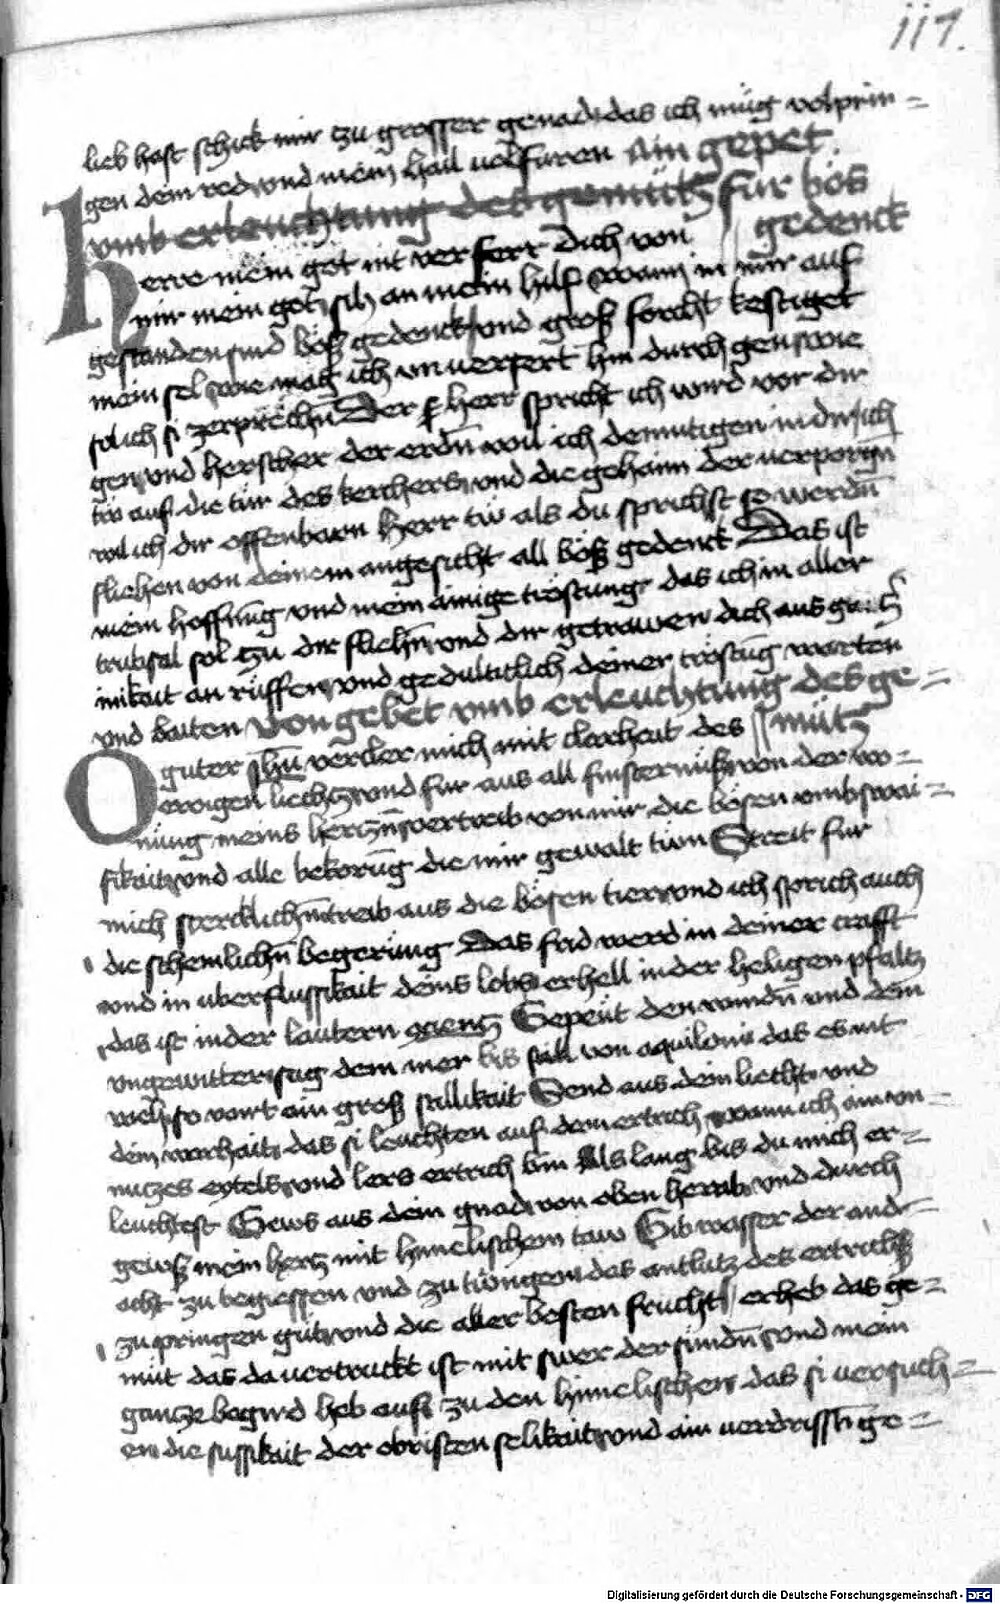 117.
lieb hast schick mir tzu grosser genad das ich müg volprin=
gen dem red vnd mein hail volfüren Ain gepet.
vmb erleuchtung des gemütz für bös
herre mein got nit ver ferr dich von gedenck
mir mein got sich an mein hilf wann in mir auf
gestanden sind böß gedenck vnd groß forcht kestiget
mein sel wie mag ich vnuersert hin durch gen wie
sol ich si zerprechn Der herr spricht ich wird vor dir
gen vnd herscher der erdn wil ich demütigen
tw auf die tür des kerchers vnd die gehaim der verporgn
wil ich dir offenbarn Herr tw als du sprichst so werdn
fliehen von deinem angesicht all böß gedenck Das ist
mein hoffnūg vnd mein ainige tröstung das ich in aller
trubsal sol tzu dir fliehn vnd dir getrawen dich aus
inikait an rüffen vnd gedultiklich deiner tröstūg warten
vnd baiten Von gebet vmb erleuchtung des ge=
O guter Jhū vercler mich mit clarhait des mütz
ewigen liechtz vnd für aus all finsternüß von der wo=
nüng meins hertzn vertreib von mir die bösen vmbswai=
fikait vnd alle bekorūg die mir gewalt tun Streit für
mich stercklichn treib aus die bösen tier vnd ich sprich auch
die schemlichn begerüng Das frid werd in deiner crafft
vnd in uberflussikait deins lobs erhell in der heligen pfaltz
das ist in der lautern Gepeüt den windn vnd dem
vngewitter sag dem mer bis still von aquilonis das es nit
so wirt ain groß stillikait Send aus dein liecht vnd
dein warhait das si leuchten auf dem ertrich wann ich ain vn=
nutzes eytels vnd lers ertrich bin Als lang bis du mich er=
leuchtest Gews aus dein gnad von oben herab vnd durch
gewß mein hertz mit himelischem taw Gib wasser der and=
acht zu begiessen vnd zu das antlutz des ertrichß
zu pringen gut vnd die aller besten frucht erheb das ge=
müt das da vertruckt ist mit swer der sündn vnd mein
gantze begird heb auf zu den himelischen das si versuch=
en die sussikait der obristen selikait vnd ain verdrisslige=